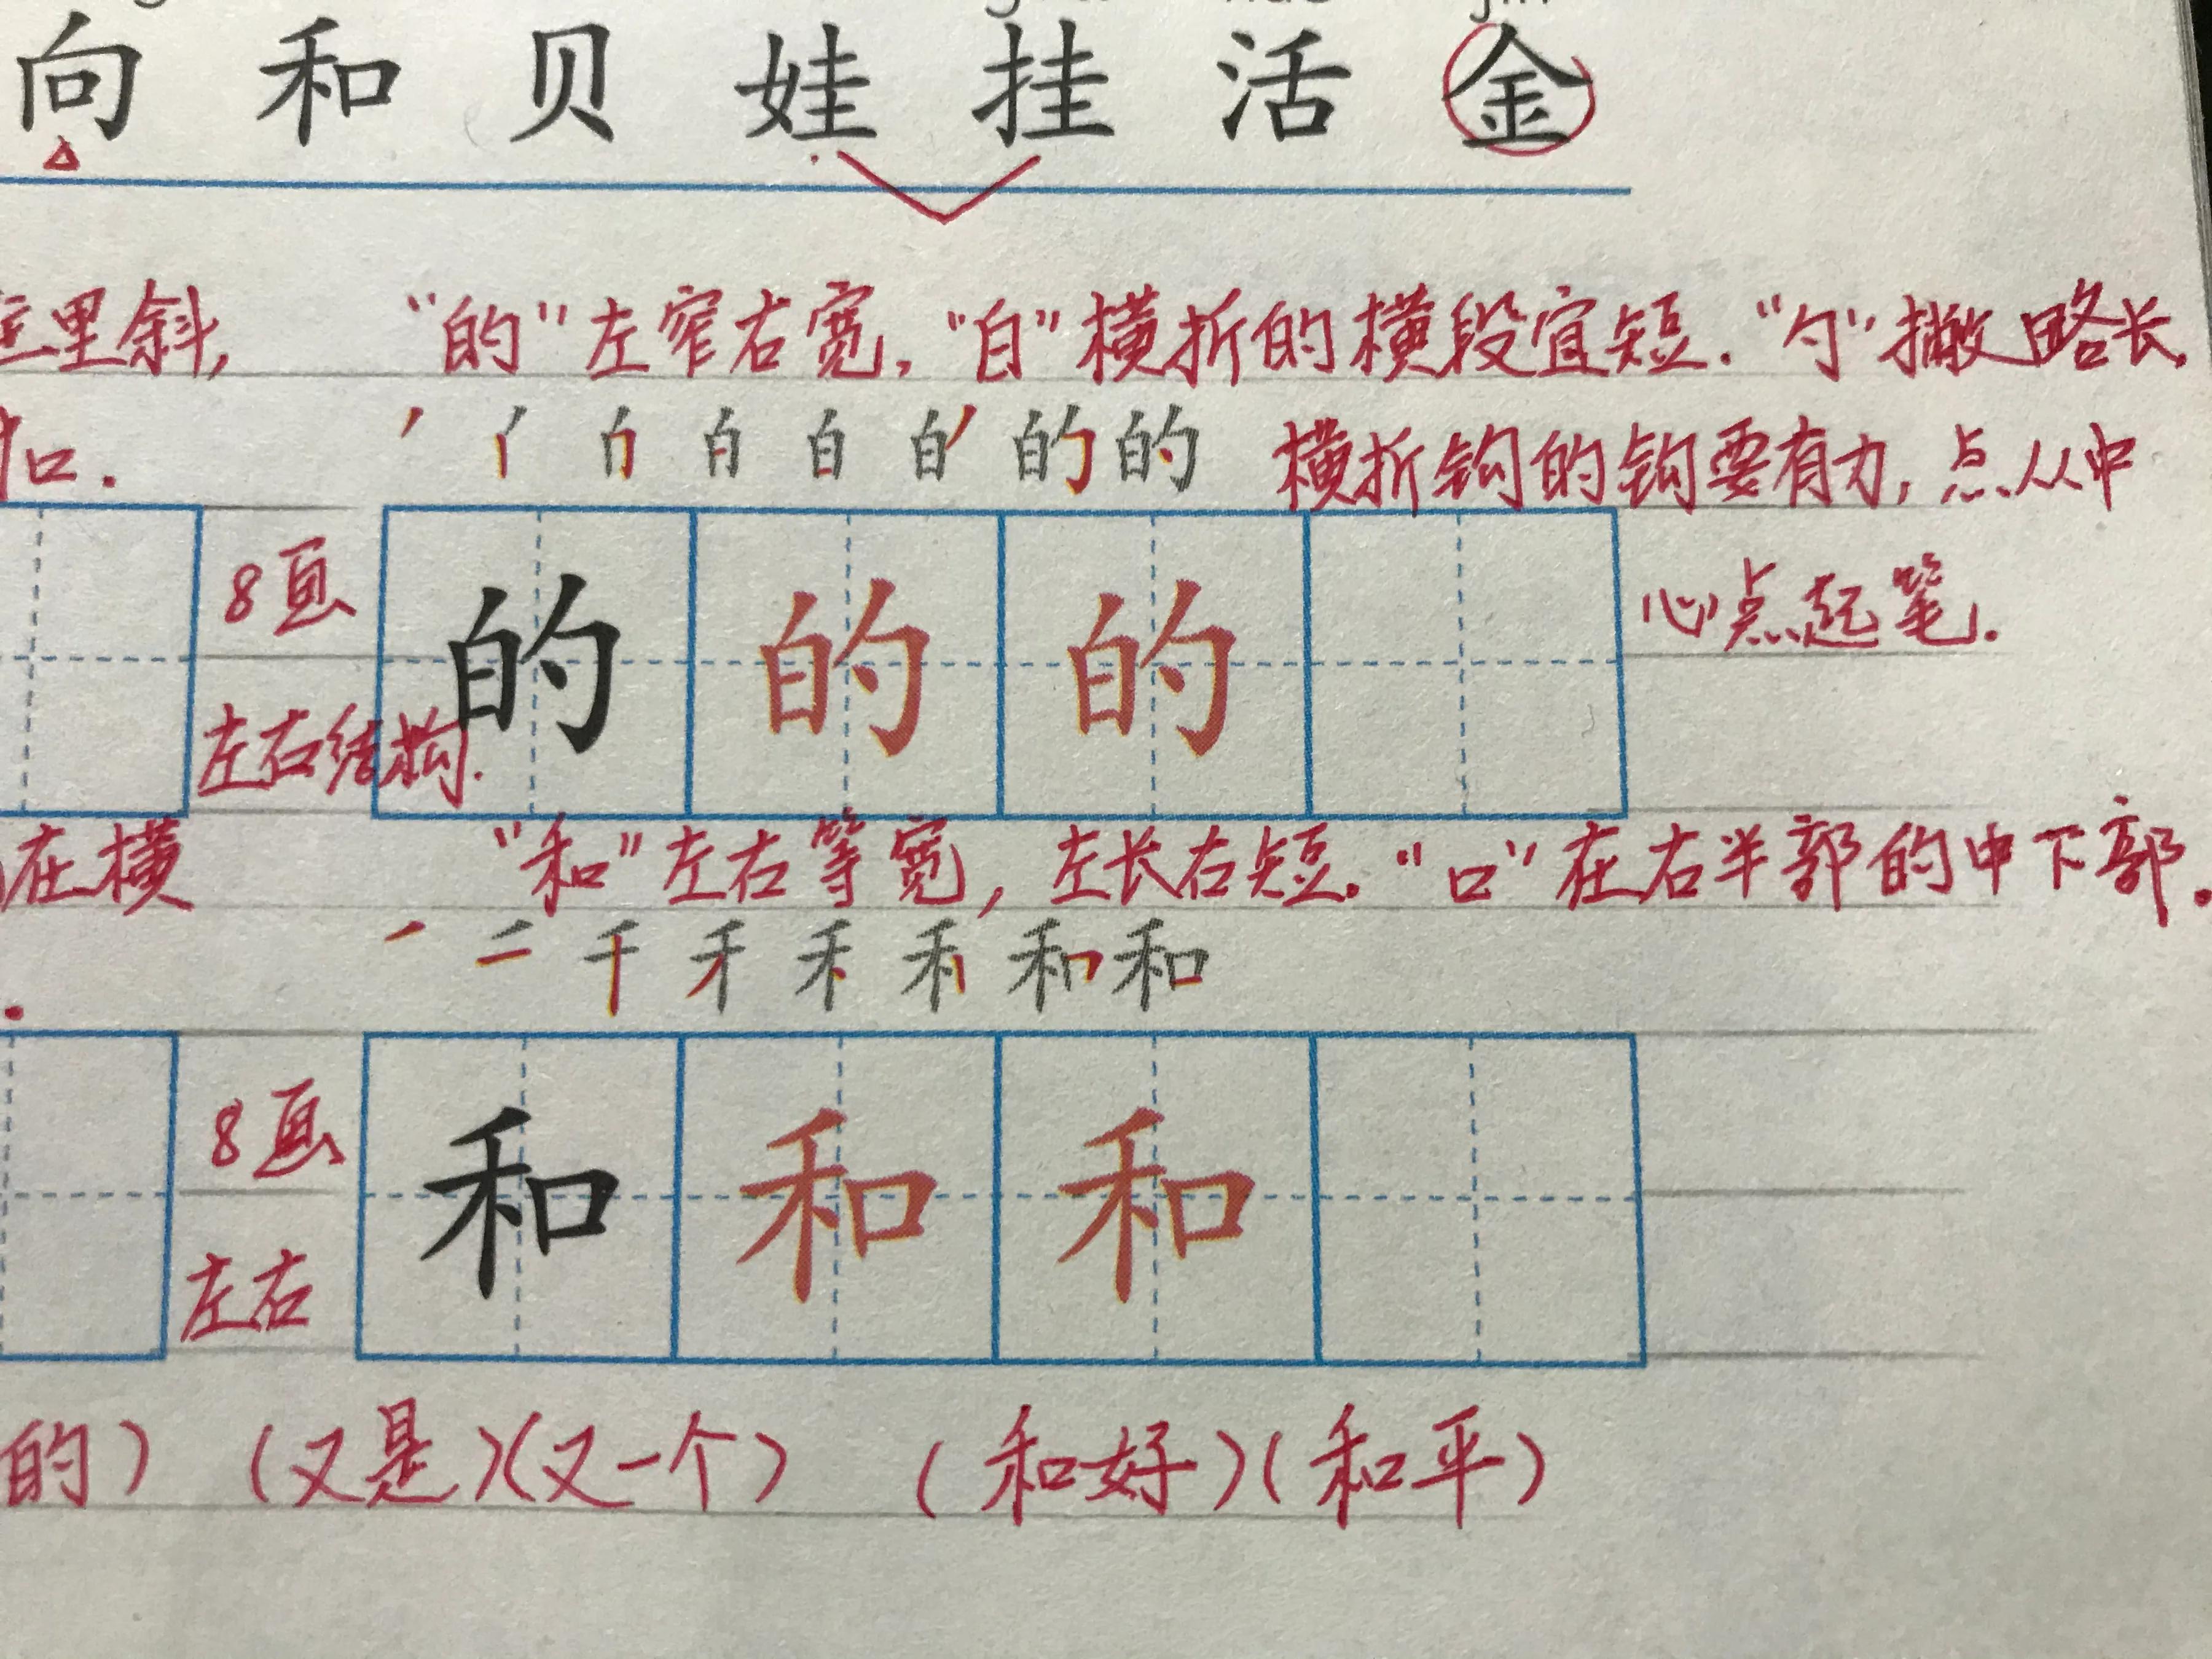 向 和 贝 娃 挂 活 金
里斜, “的”左窄右宽,“白”横折的横段宜短.“勺”撇略长,
口. 白 白 的 的 横折钩的钩要有力,点从中
8画 的 的 的 心点起笔.
左右结构.
在横 “和”左右等宽,左长右短.“口”在右半部的中下部.
二 千 禾 和 和
8画 和 和 和
左右
的) (又是)(又一个) (和好)(和平)